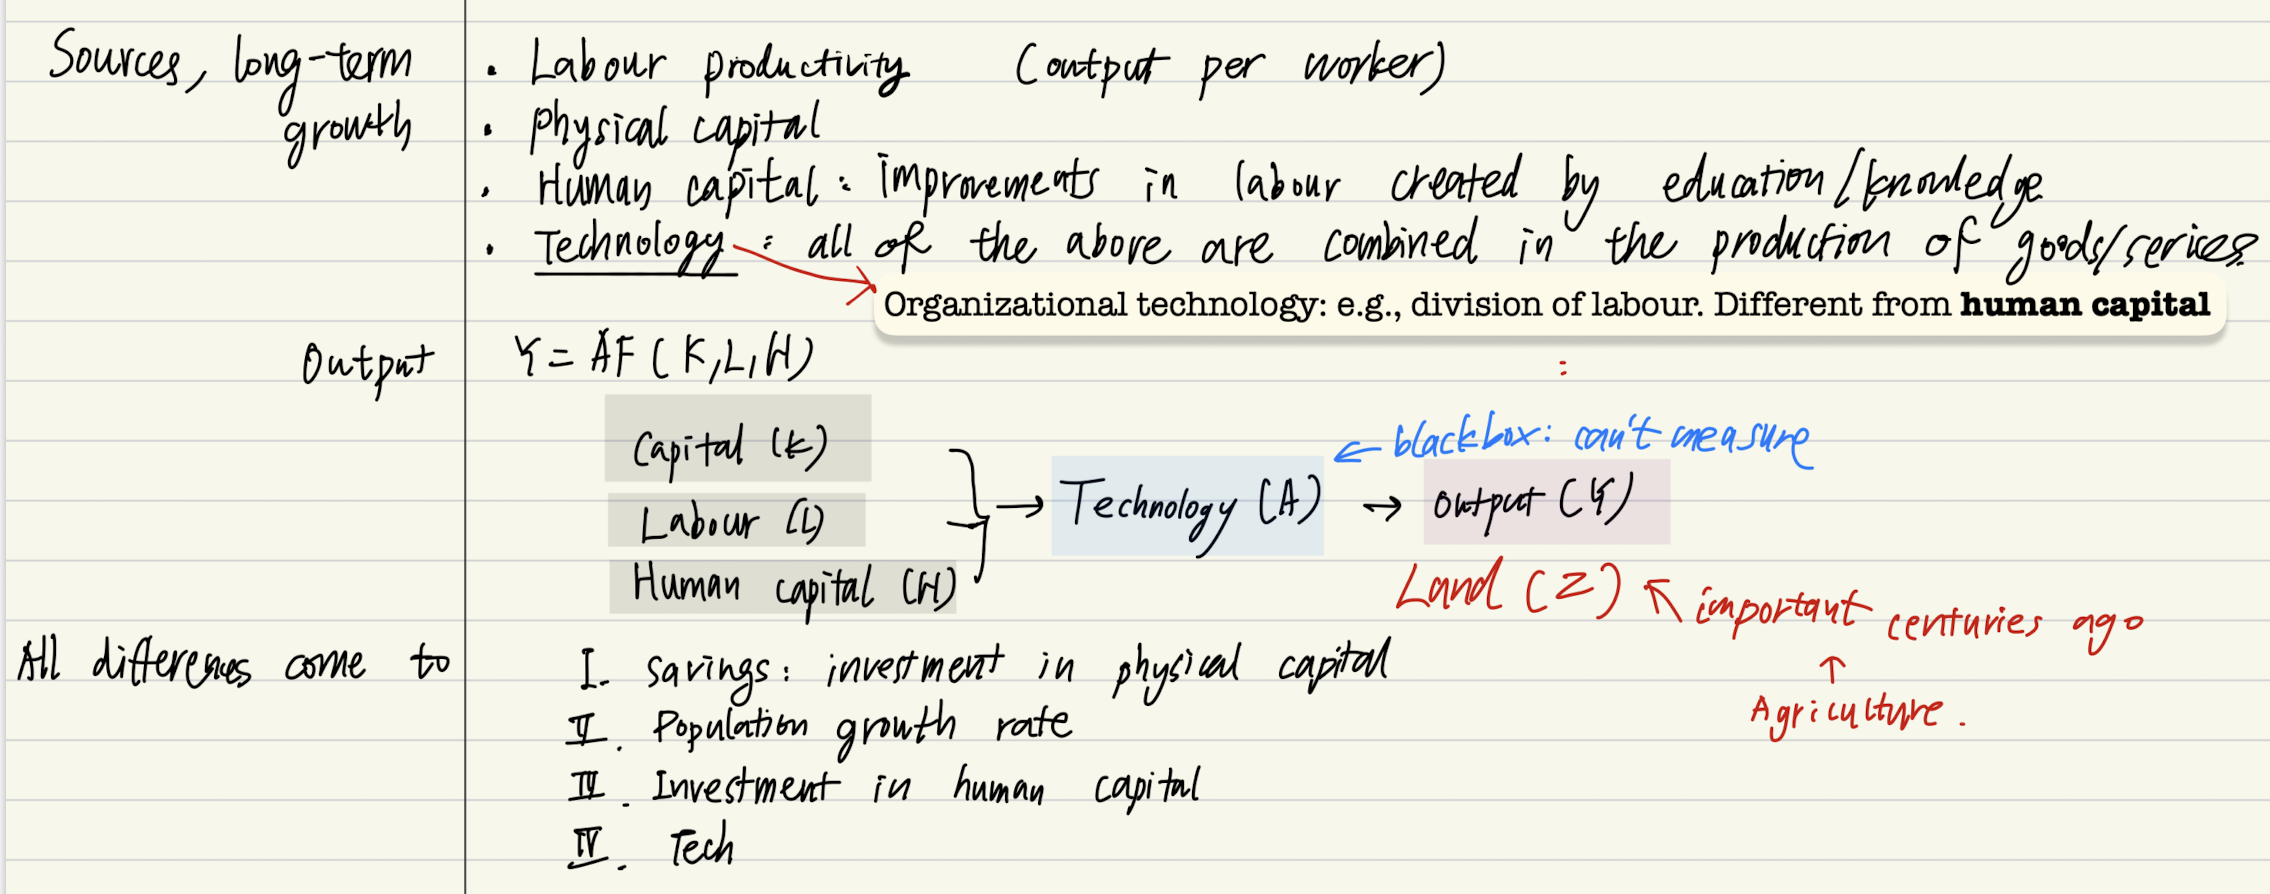 Sources, long-term growth
• Labour productivity (output per worker)
• physical capital
• Human capital : improvements in labour created by education/knowledge
• Technology : all of the above are combined in the production of goods/serices
Organizational technology: e.g., division of labour. Different from human capital
:
Output Y = AF (K,L,H)
Capital (K)
Labour (L)
Human capital (H)
→ Technology (A) → output (Y)
← blackbox: can't measure
Land (Z) ↖ important centuries ago
↑
Agriculture.
All differences come to
I. savings: investment in physical capital
II. Population growth rate
III. Investment in human capital
IV. Tech